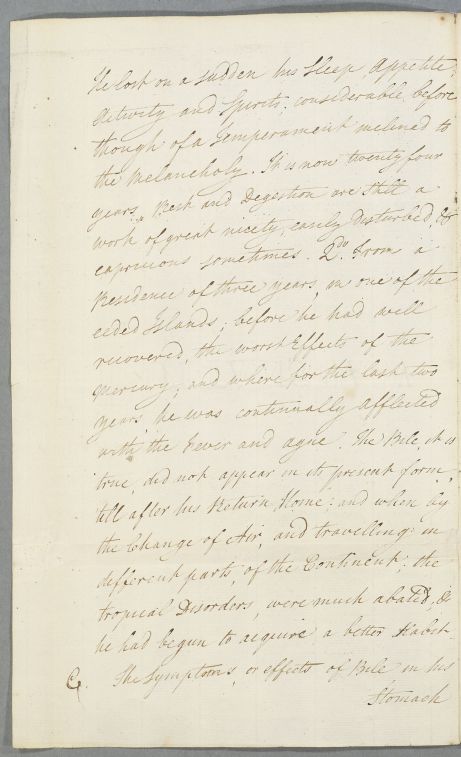 He lost on a sudden his Sleep, Appetite,
Activity and Spirits; considerable, before
though of a Temperament inclined to
the Melancholy. It is now twenty four
years. Rest and Degestion are Still a
work of great nicety, easily Disturbed, &
capricious sometimes. 2do. From a
Residence of three years, in one of the
ceded Islands; before he had well
recovered, the worst Effects of the
Mercury; and where, for the last two
years, he was continually afflicted
with the Fever and ague. The Bile, it is
true, did not appear in its present form,
till after his Return, Home: and when by
the Change of Air, and travelling in
different parts, of the Continent; the
tropical Disorders, were much abated, &
he had begun to acquire a better Habit.
The Symptoms, or effects of Bile, in his
Stomach